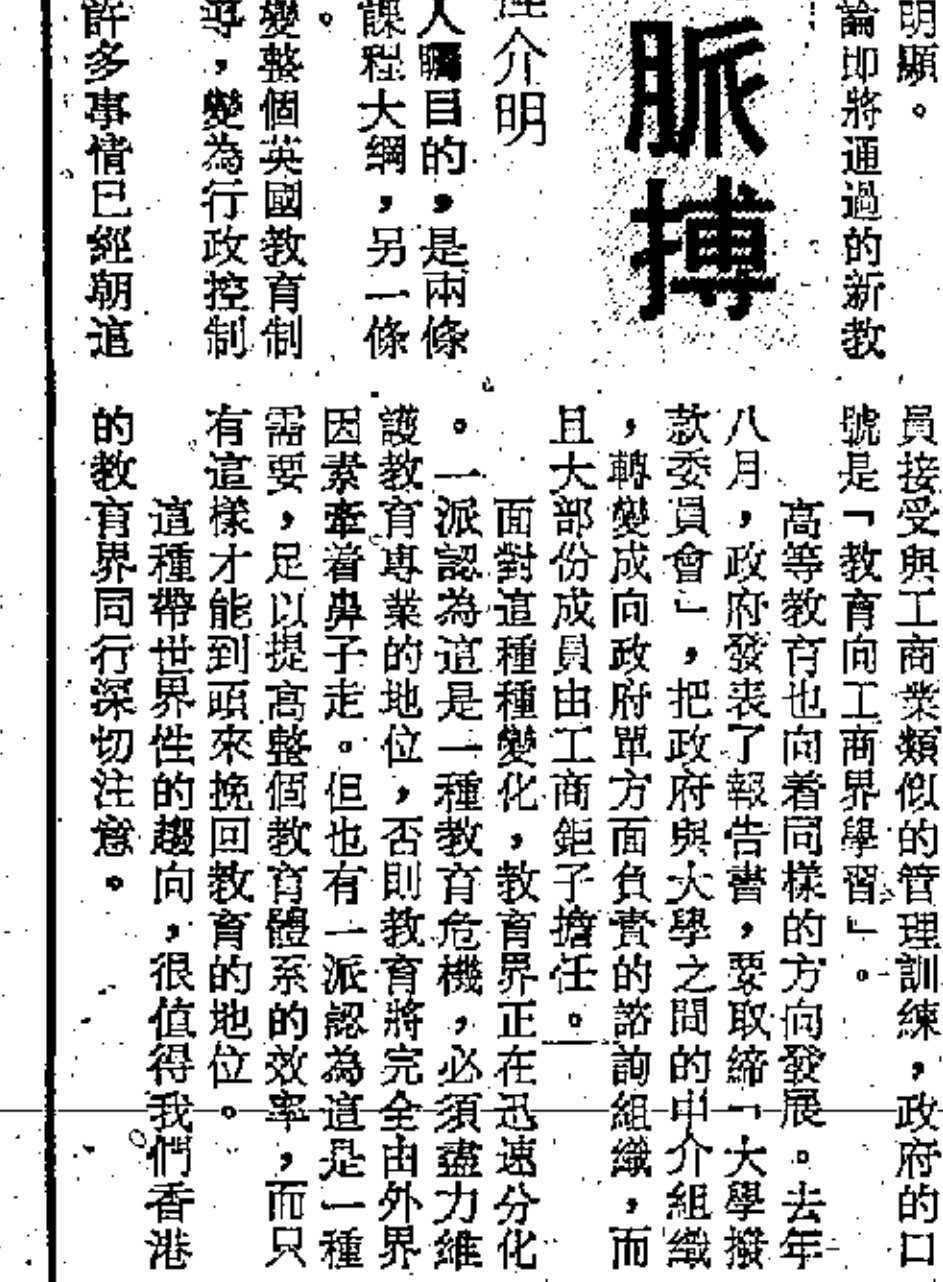 明顯。
論即將通過的新教
脈搏
介明
人矚目的，是兩條
課程大綱，另一條
。
變整個英國教育制
，變為行政控制
許多事情已經朝這
員接受與工商業類似的管理訓練，政府的口
號是「教育向工商界學習」。
高等教育也向着同樣的方向發展。去年
八月，政府發表了報告書，要取締「大學撥
款委員會」，把政府與大學之間的中介組織
，轉變成向政府單方面負責的諮詢組織，而
且大部份成員由工商鉅子擔任。
面對這種種變化，教育界正在迅速分化
。一派認為這是一種教育危機，必須盡力維
護教育專業的地位，否則教育將完全由外界
因素牽着鼻子走。但也有一派認為這是一種
需要，足以提高整個教育體系的效率，而只
有這樣才能到頭來挽回教育的地位。
這種帶世界性的趨向，很值得我們香港
的教育界同行深切注意。